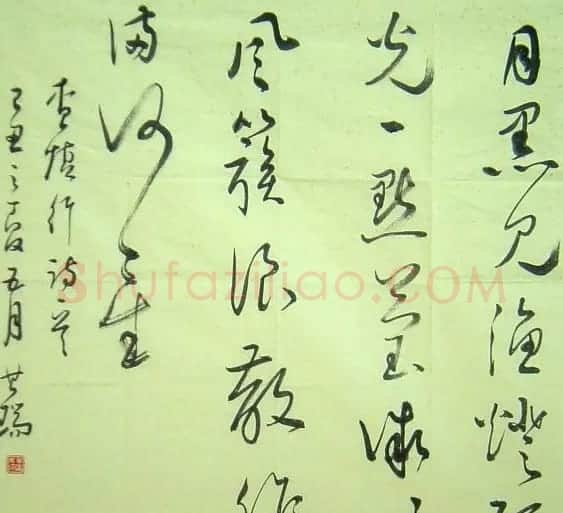 月黑见渔燈
光一點萤微
风簇浪散作
满河星
查慎行诗
己丑之夏五月 其瑞
Shufaziliao.COM